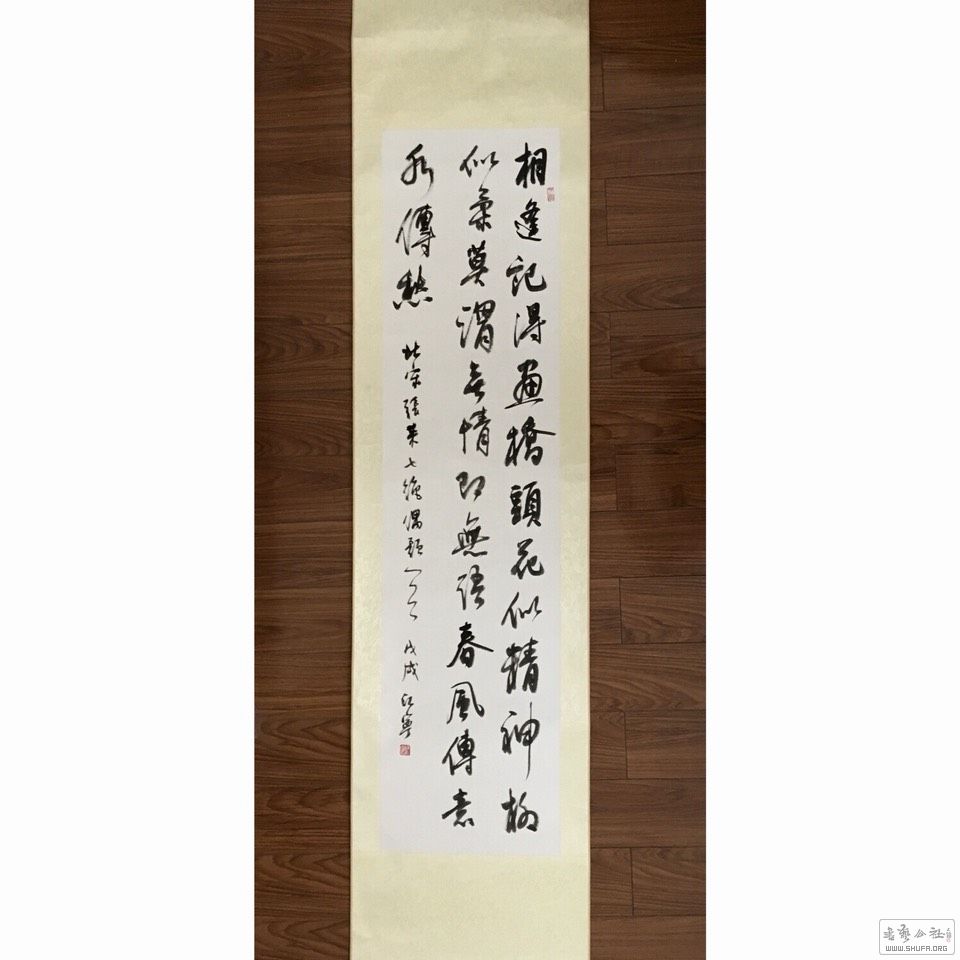 相逢記得畫橋頭花似精神柳
似柔莫謂無情即無語春風傳意
水傳愁
北宋張耒七絕偶題 戊戌
书艺公社
WWW.SHUFA.ORG